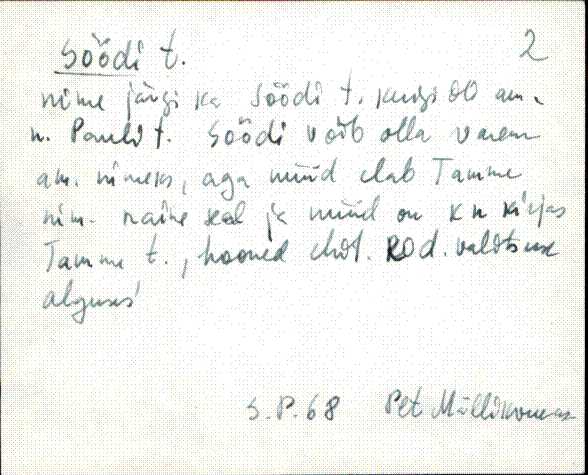 Söödi t. 2
nime järgi ka Söödi t. kuigi oli am.
n. Pauli t. Söödi võib olla vanem
am. nimeks, aga nüüd elab Tamme
nim. naine seal ja nüüd on ka kirjas
Tamme t., hooned ehit. valitsuse
alguses
S.P.68 Pet